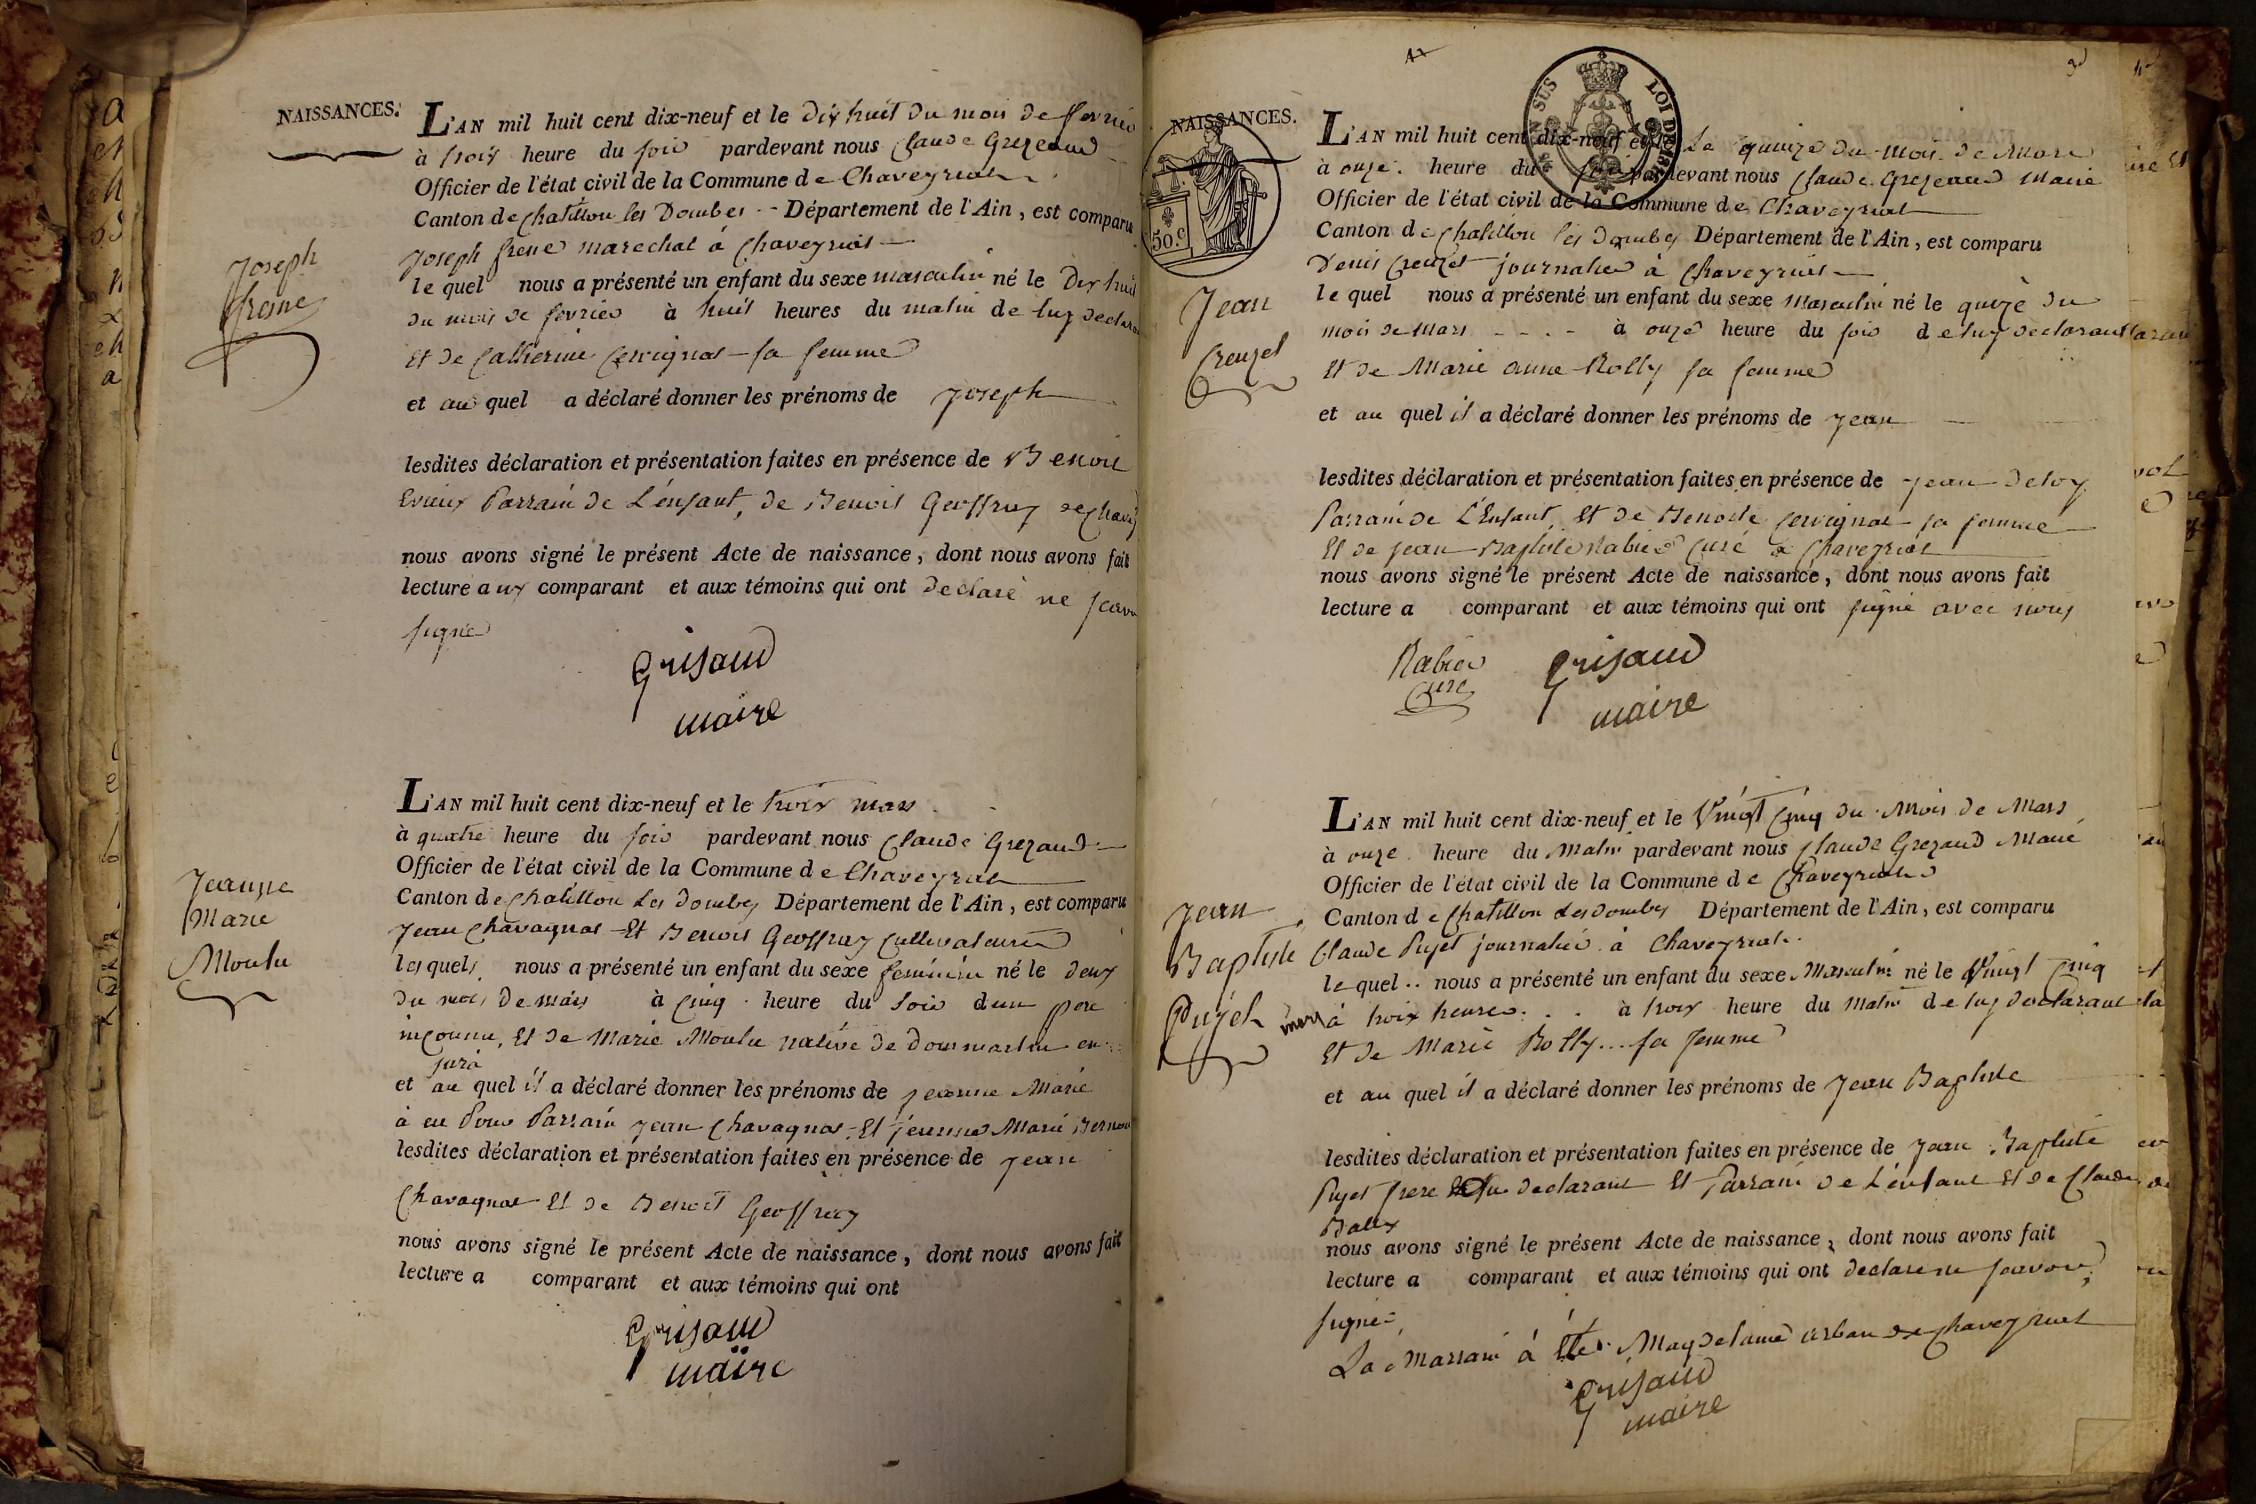 NAISSANCES.
L'AN mil huit cent dix-neuf et le dix huit du mois de fevrier
à trois heure du soir pardevant nous Claude Grezeaud
Officier de l'état civil de la Commune de Chaveyriat
Canton de Chatillon les Dombes Département de l'Ain, est comparu
Joseph frene marechal à Chaveyriat
Joseph
frene
lequel nous a présenté un enfant du sexe masculin né le Dix huit
du mois de fevrier à huit heures du matin de luy declarant
Et de Catherine Cervignat sa femme
et au quel a déclaré donner les prénoms de Joseph
lesdites déclaration et présentation faites en présence de Benoit
Parrain de L'enfant, de Benoit Geoffray de Chavey
nous avons signé le présent Acte de naissance, dont nous avons fait
lecture aux comparant et aux témoins qui ont declaré ne scavoir
signé
Grisaud
maire
L'AN mil huit cent dix-neuf et le trois mars
à quatre heure du soir pardevant nous Claude Grezaud
Officier de l'état civil de la Commune de Chaveyriat
Canton de Chatillon Les Dombes Département de l'Ain, est comparu
Jean Chavagnat Et Benoit Geoffray Cultivateurs
Jeanne
Marie
Moulu
lesquels nous a présenté un enfant du sexe feminin né le deux
du mois de mars à Cinq heure du soir d'un pere
inconnu, Et de Marie Moulu native de Dommartin en
jura
et au quel il a déclaré donner les prénoms de jeanne Marie
à eu Pour Parrain jean Chavagnat, Et jeanne Marie
lesdites déclaration et présentation faites en présence de jean
Chavagnat Et de Benoit Geoffray
nous avons signé le présent Acte de naissance, dont nous avons fait
lecture a comparant et aux témoins qui ont
Grisaud
maire
NAISSANCES.
50.c
SUS LOI DE
L'AN mil huit cent dix-neuf et Le quinze du mois de Mars
à onze heure du soir pardevant nous Claude Grezeaud Maire
Officier de l'état civil de la Commune de Chaveyriat
Canton de Chatillon les Dombes Département de l'Ain, est comparu
Denis Creuzet journalier à Chaveyriat
Jean
Creuzet
lequel nous a présenté un enfant du sexe Masculin né le quinze du
mois de Mars à onze heure du soir de luy declarant
Et de Marie anne Rolly sa femme
et au quel il a déclaré donner les prénoms de jean
lesdites déclaration et présentation faites en présence de jean Deloy
Parrain de L'Enfant, Et de Benoite Cervignat sa femme
Et de jean Baptiste Rabier Curé à Chaveyriat
nous avons signé le présent Acte de naissance, dont nous avons fait
lecture a comparant et aux témoins qui ont signé avec nous
Rabier
Curé
Grisaud
maire
L'AN mil huit cent dix-neuf et le Vingt Cinq du Mois de Mars
à onze heure du Matin pardevant nous Claude Grezaud Maire
Officier de l'état civil de la Commune de Chaveyriat
Canton de Chatillon Les dombes Département de l'Ain, est comparu
Claude Pujet journalier à Chaveyriat
Jean
Baptiste
Pujet
lequel nous a présenté un enfant du sexe Masculin né le Vingt Cinq
mars à trois heures à trois heure du Matin de luy declarant
Et de Marie Rolly sa femme
et au quel il a déclaré donner les prénoms de Jean Baptiste
lesdites déclaration et présentation faites en présence de jean Baptiste
Pujet frere du declarant Et Parrain de L'enfant Et de Claude
nous avons signé le présent Acte de naissance, dont nous avons fait
lecture a comparant et aux témoins qui ont declare ne scavoir
signé
La Marraine à Eté Magdelaine arban de Chaveyriat
Grisaud
maire